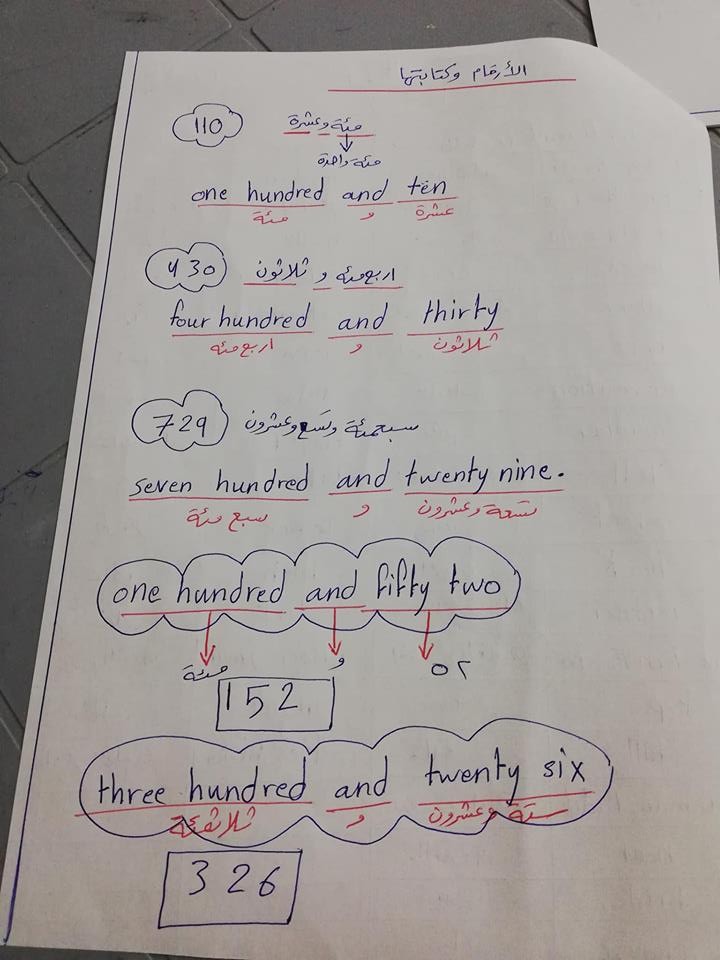 الأرقام وكتابتها
110 مئة وعشرة
مئة واحدة
one hundred and ten
مئة و عشرة
430 اربع مئه و ثلاثون
four hundred and thirty
اربع مئه و ثلاثون
729 سبعمئة وتسع وعشرون
seven hundred and twenty nine.
سبع مئة و تسعة وعشرون
one hundred and fifty two
مئة و ٥٢
152
three hundred and twenty six
ثلاثمئة و ستة وعشرون
326